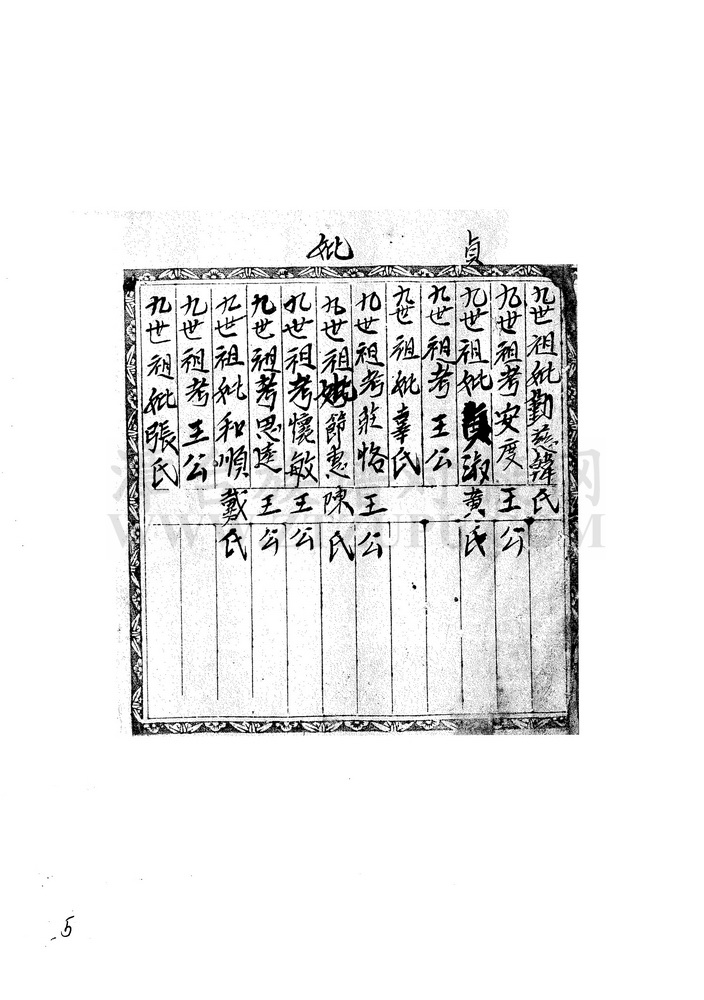 貞
妣
九世祖妣勤慈韓氏
九世祖考安度王公
九世祖妣貞淑黄氏
九世祖考王公
九世祖妣辜氏
九世祖考莊恪王公
九世祖妣節惠陳氏
九世祖考懷敏王公
九世祖考思遠王公
九世祖妣和順戴氏
九世祖考王公
九世祖妣張氏
5